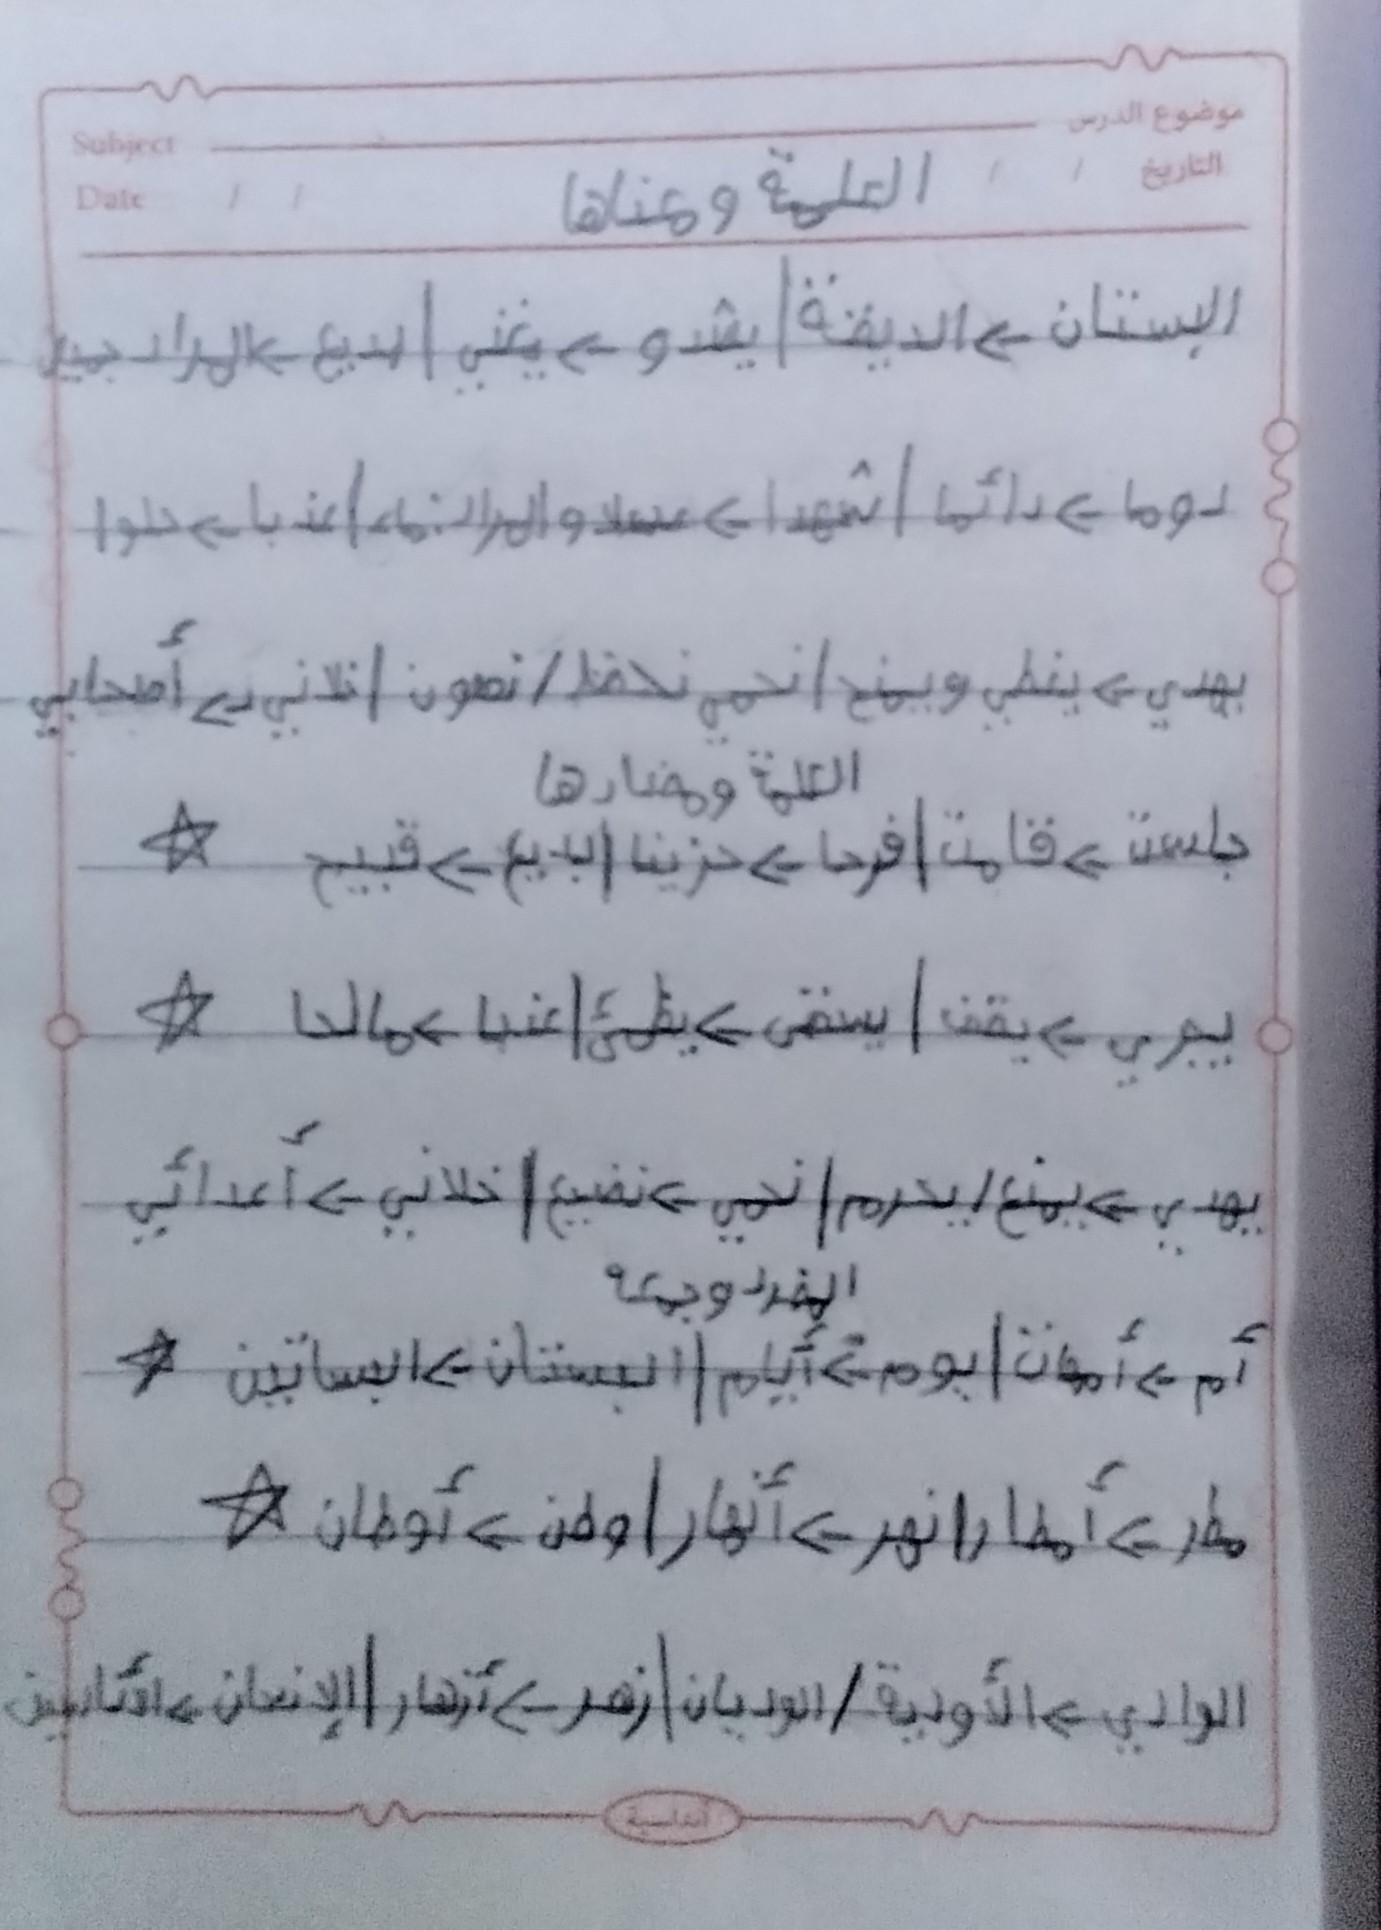 موضوع الدرس Subject
التاريخ / / Date / /
الكلمة ومعناها
البستان -> الحديقة | يشدو -> يغني | بديع -> المراد جميل
دوما -> دائما | شهدا -> عسلا والمراد بماء | عذبا -> حلوا
يهدي -> يعطي ويمنح | نحمي نحفظ / نصون | خلاني -> أصحابي
الكلمة ومضادها
جلست -> قامت | فرحا -> حزينا | بديع -> قبيح ☆
يجري -> يقف | يسقى -> يظمئ | عذبا -> مالحا ☆
يهدي -> يمنع / يحرم | نحمي -> نضيع | خلاني -> أعدائي
المفرد وجمعه
أم -> أمهات | يوم -> أيام | البستان -> البساتين ☆
مطر -> أمطار | نهر -> أنهار | وطن -> أوطان ☆
الوادي -> الأودية / الوديان | زهر -> أزهار | الإنسان ->
أندلسية